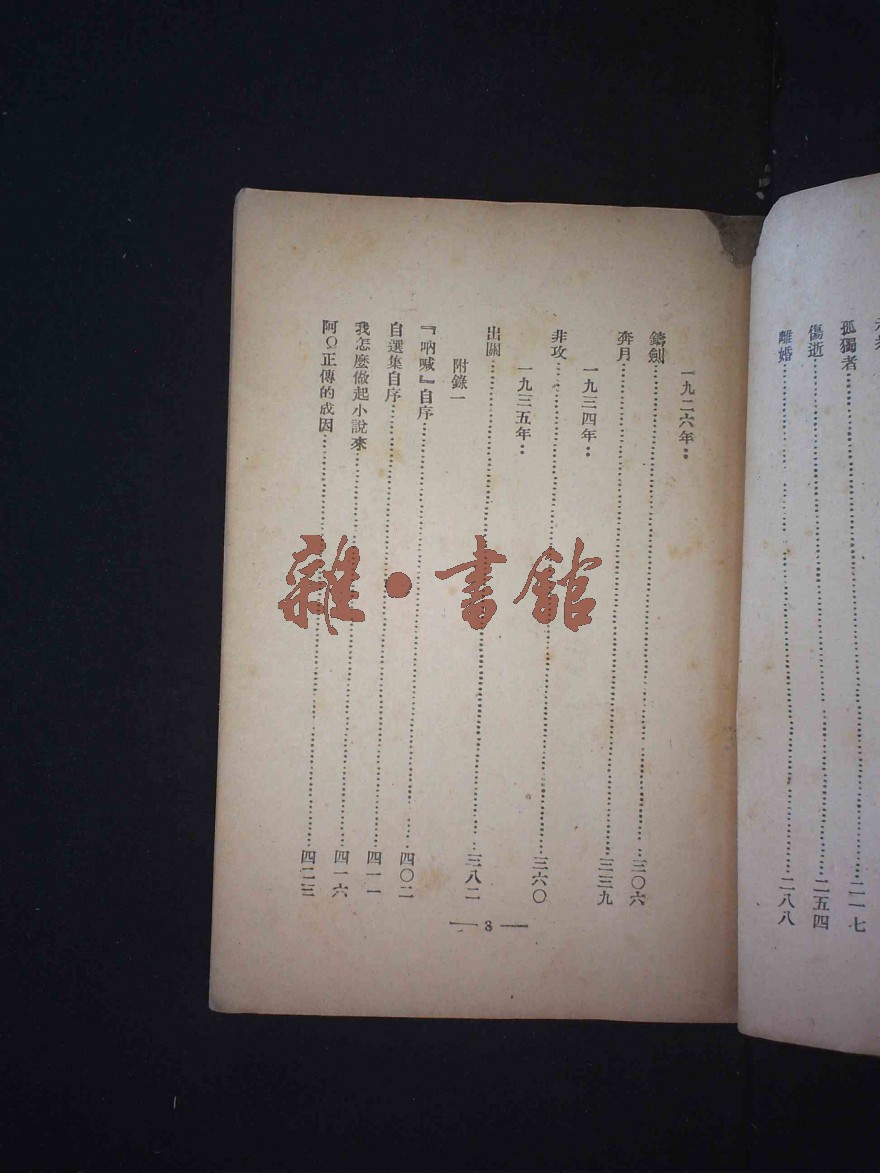 孤獨者……二一七
傷逝……二五四
離婚……二八八
一九二六年：
鑄劍……三〇六
奔月……三三九
一九三四年：
非攻……三六〇
一九三五年：
出關……三八二
附錄一
『吶喊』自序……四〇二
自選集自序……四一一
我怎麼做起小說來……四一六
阿Q正傳的成因……四二三
— 3 —
雜·書館